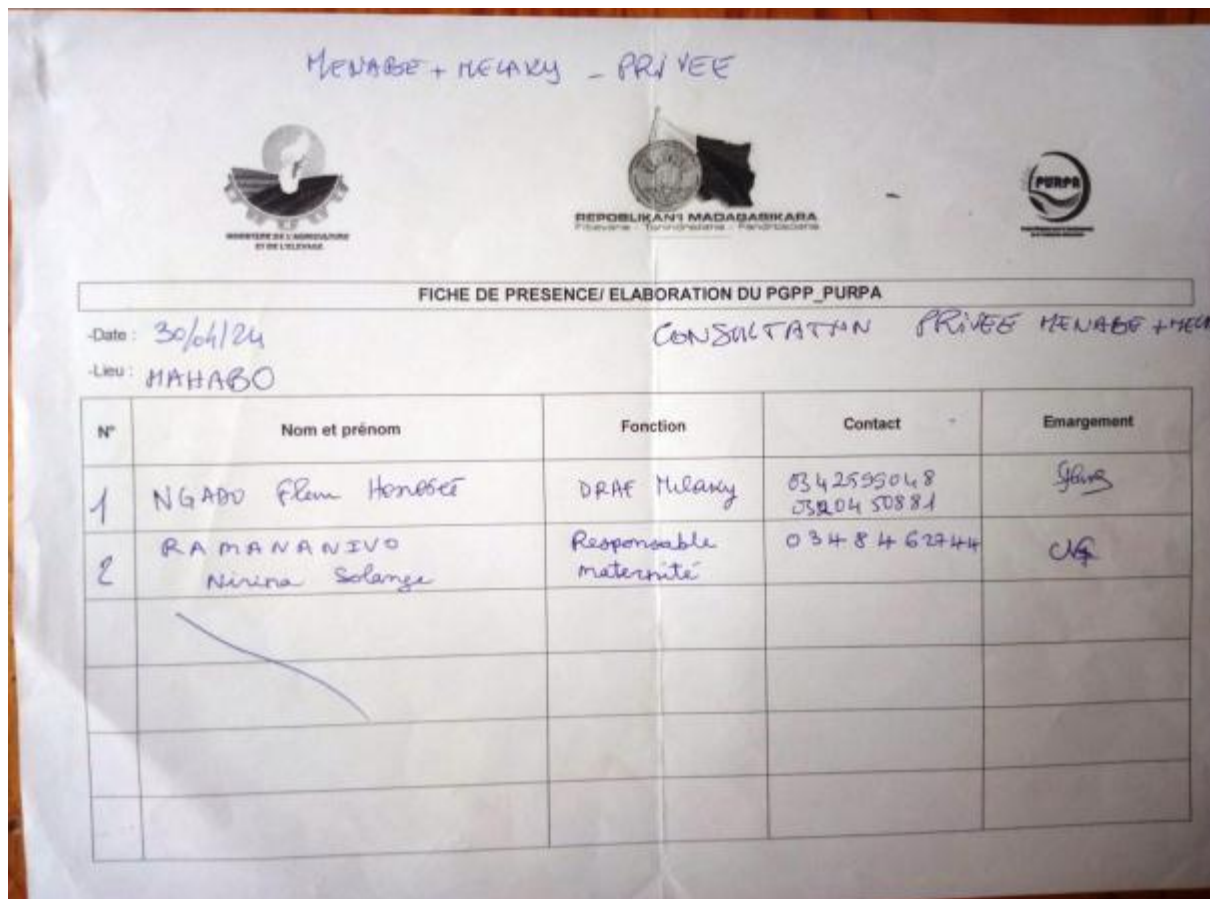 MENABE + MELAKY - PRIVEE
MINISTERE DE L'AGRICULTURE
ET DE L'ELEVAGE
REPOBLIKAN'I MADAGASIKARA
Fitiavana - Tanindrazana - Fandrosoana
PURPA
FICHE DE PRESENCE/ ELABORATION DU PGPP_PURPA
-Date : 30/04/24
CONSULTATION PRIVEE MENABE + MELA
-Lieu : MAHABO
N° Nom et prénom Fonction Contact Emargement
1 NGADO DRAE Melaky 0342595048
0320450881
2 RAMANANIVO Responsable 0348462744
Nirina Solange maternité